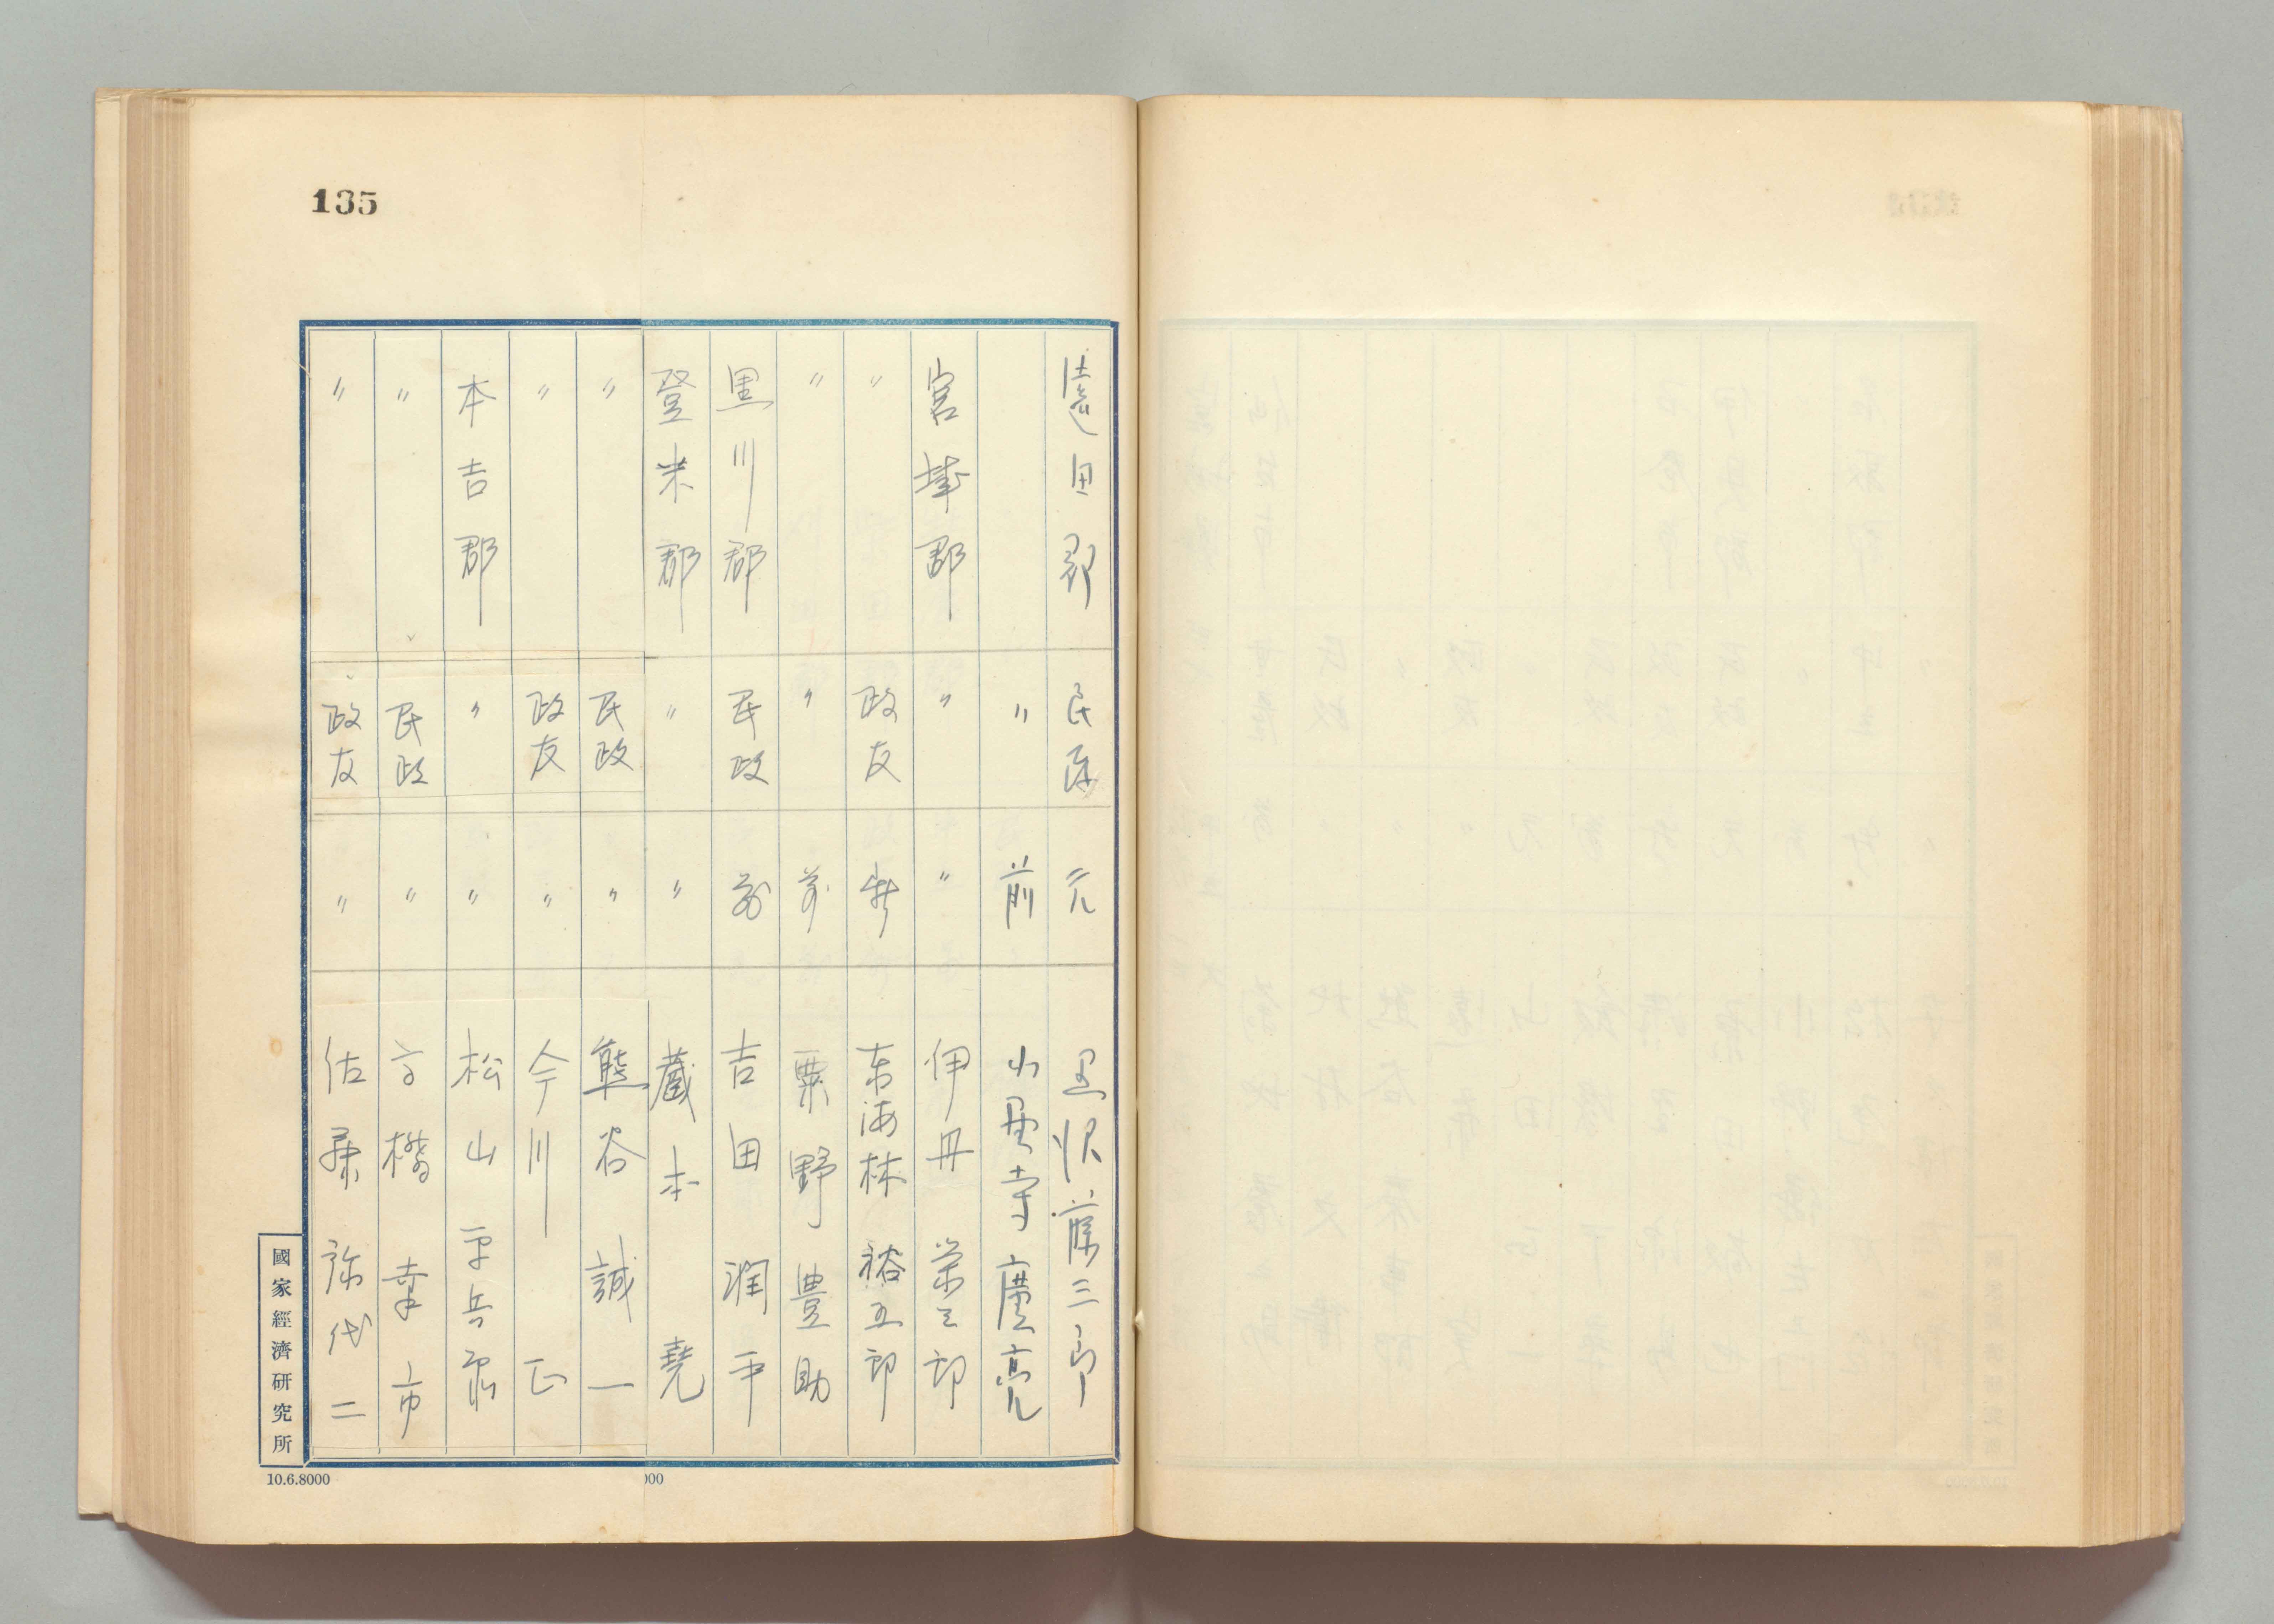 135
遠田郡 民政 元 黒沢藤三郎
〃 前 小野寺廣亮
宮城郡 〃 〃 伊丹栄三郎
〃 政友 新 東海林裕五郎
〃 〃 前 粟野豊助
黒川郡 民政 前 吉田潤平
登米郡 〃 〃 蔵本堯
〃 民政 〃 熊谷誠一
〃 政友 〃 今川正
本吉郡 〃 〃 松山平兵衛
〃 民政 〃 高橋幸市
〃 政友 〃 佐藤弥代二
國家經濟研究所
10.6.8000
000